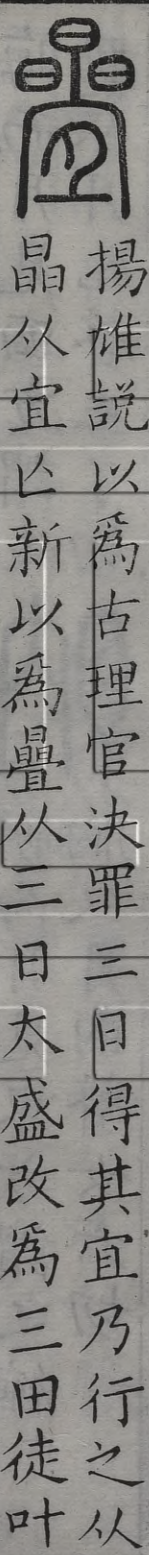 疊
揚雄説以爲古理官決罪三日得其宜乃行之从
晶从宜亾新以爲疊从三日太盛改爲三田徒叶